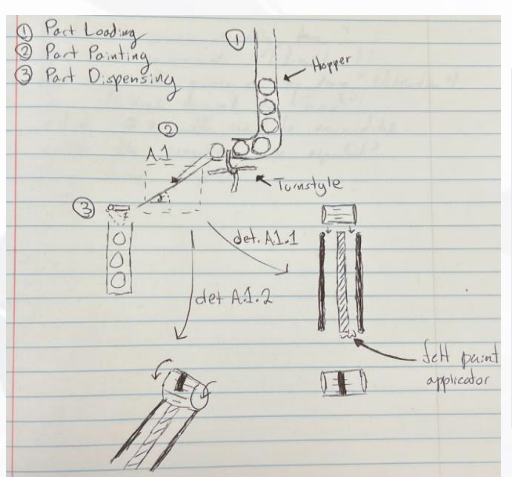 ① Part Loading
② Part Painting
③ Part Dispensing
①
Hopper
②
A1
Turnstyle
③
det. A1.1
det A1.2
felt paint
applicator